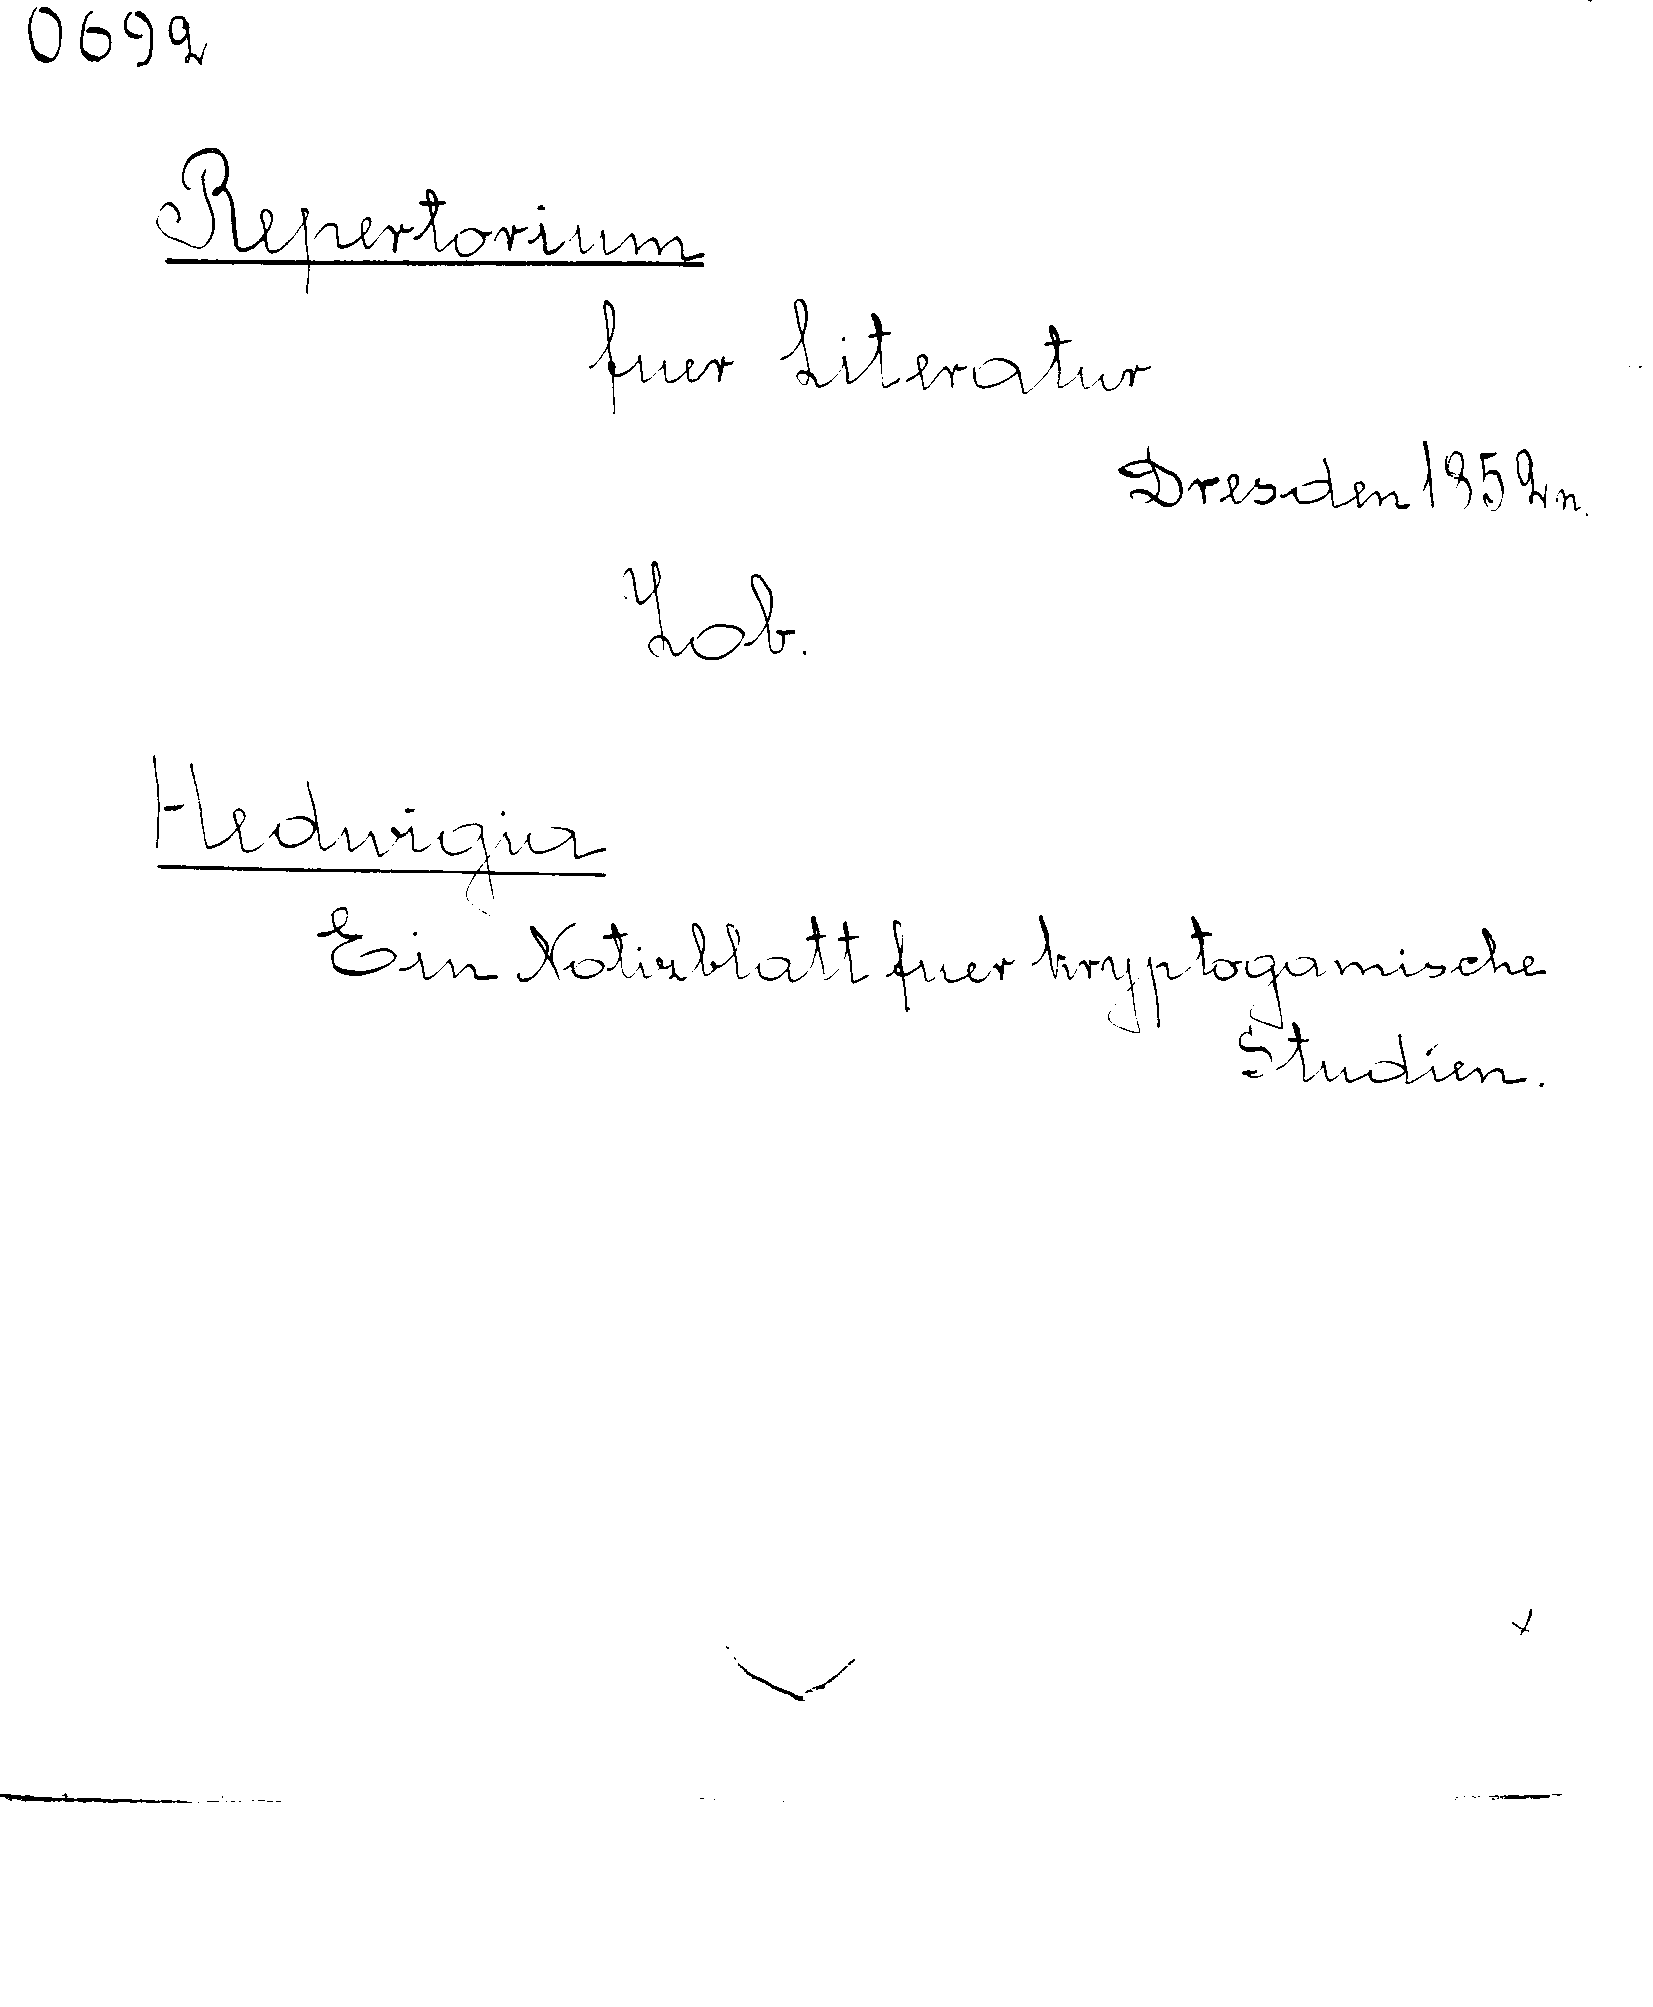 0692
Repertorium
fuer Literatur
Dresden 1852n.
Zob.
Hedwigia
Ein Notizblatt fuer kryptogamische
Studien.